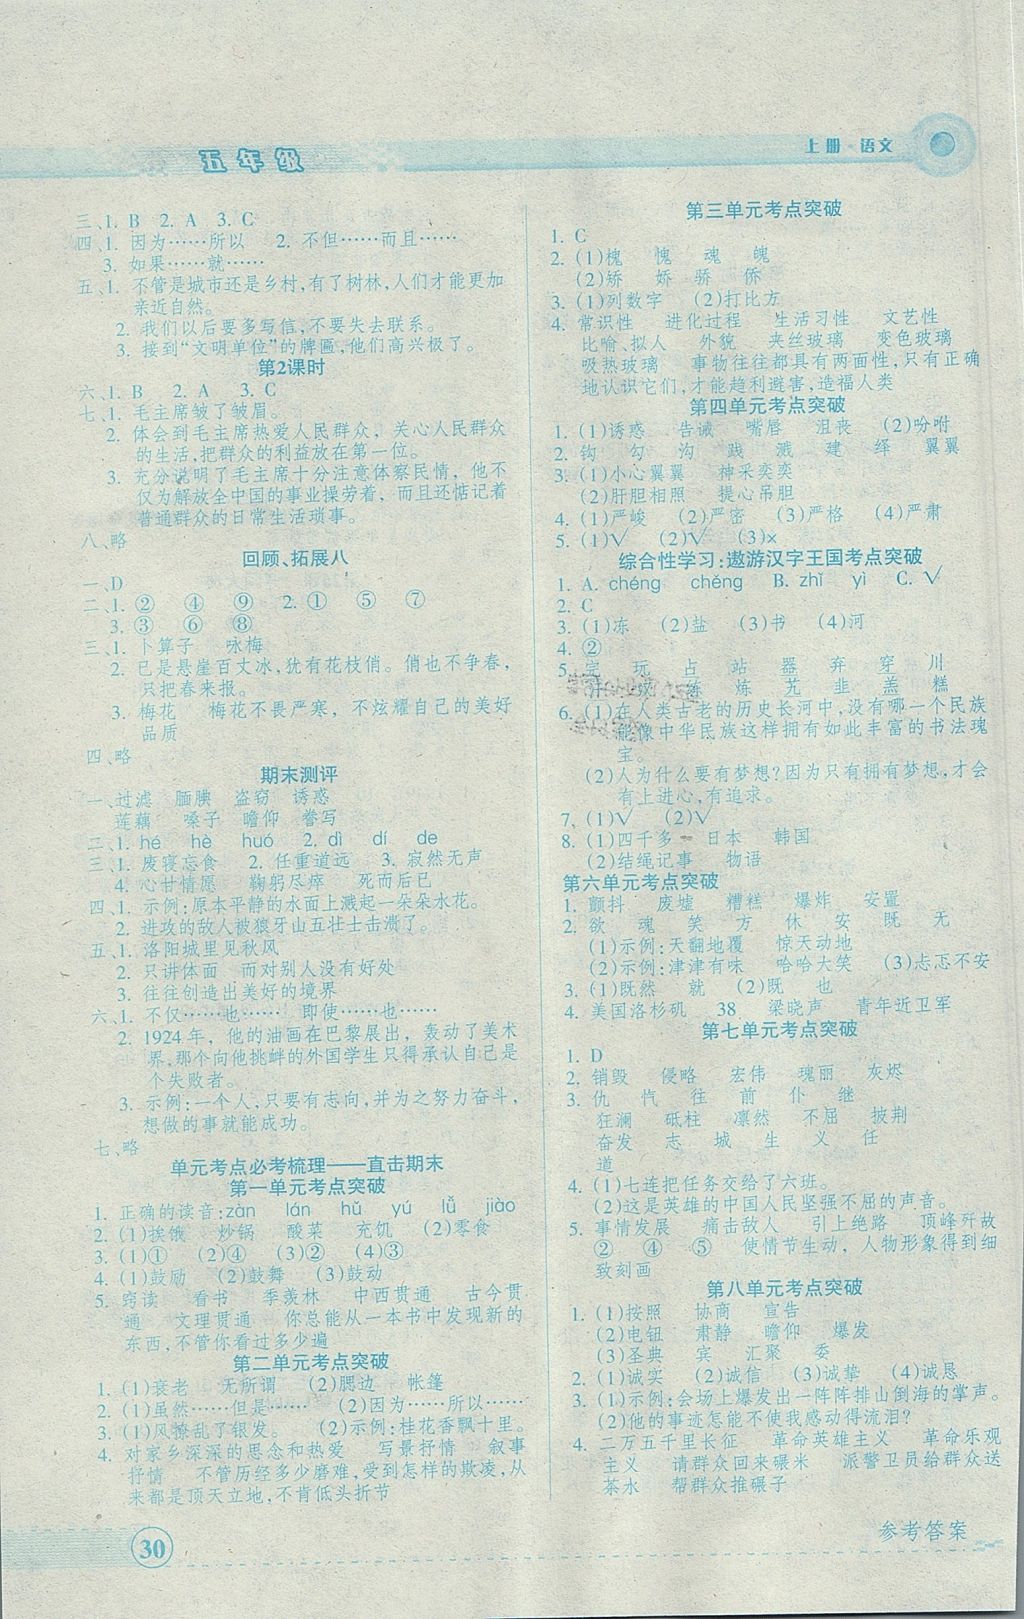 五年级
上册·语文
三、1. B  2. A  3. C
四、1. 因为……所以  2. 不但……而且……
3. 如果……就……
五、1. 不管是城市还是乡村，有了树林，人们才能更加
亲近自然。
2. 我们以后要多写信，不要失去联系。
3. 接到“文明单位”的牌匾，他们高兴极了。
第2课时
六、1. B  2. A  3. C
七、1. 毛主席皱了皱眉。
2. 体会到毛主席热爱人民群众，关心人民群众
的生活，把群众的利益放在第一位。
3. 充分说明了毛主席十分注意体察民情，他不
仅为解放全中国的事业操劳着，而且还惦记着
普通群众的日常生活琐事。
八、略
回顾、拓展八
一、D
二、1. ②  ④  ⑨  2. ①  ⑤  ⑦
3. ③  ⑥  ⑧
三、1. 卜算子  咏梅
2. 已是悬崖百丈冰，犹有花枝俏。俏也不争春，
只把春来报。
3. 梅花  梅花不畏严寒，不炫耀自己的美好
品质
四、略
期末测评
一、过滤  腼腆  盗窃  诱惑
莲藕  嗓子  瞻仰  誊写
二、1. hé  hè  huó  2. dì  dí  de
三、1. 废寝忘食  2. 任重道远  3. 寂然无声
4. 心甘情愿  鞠躬尽瘁  死而后已
四、1. 示例：原本平静的水面上溅起一朵朵水花。
2. 进攻的敌人被狼牙山五壮士击溃了。
五、1. 洛阳城里见秋风
2. 只讲体面  而对别人没有好处
3. 往往创造出美好的境界
六、1. 不仅……也……  即使……也……
2. 1924年，他的油画在巴黎展出，轰动了美术
界，那个向他挑衅的外国学生只得承认自己是
个失败者。
3. 示例：一个人，只要有志向，并为之努力奋斗，
想做的事就能成功。
七、略
单元考点必考梳理——直击期末
第一单元考点突破
1. 正确的读音：zàn  lán  hǔ  yú  lǜ  jiào
2. (1)挨饿  炒锅  酸菜  充饥  (2)零食
3. (1)①  (2)④  (3)②  (4)③
4. (1)鼓励  (2)鼓舞  (3)鼓动
5. 窃读  看书  季羡林  中西贯通  古今贯
通  文理贯通  你总能从一本书中发现新的
东西，不管你看过多少遍
第二单元考点突破
1. (1)衰老  无所谓  (2)腮边  帐篷
2. (1)虽然……但是……  (2)因为……所以……
3. (1)风撩乱了银发。  (2)示例：桂花香飘十里。
4. 对家乡深深的思念和热爱  写景抒情  叙事
抒情  不管历经多少磨难，受到怎样的欺凌，从
来都是顶天立地，不肯低头折节
第三单元考点突破
1. C
2. (1)槐  愧  魂  魄
(2)矫  娇  骄  侨
3. (1)列数字  (2)打比方
4. 常识性  进化过程  生活习性  文艺性
比喻、拟人  外貌  夹丝玻璃  变色玻璃
吸热玻璃  事物往往都具有两面性，只有正确
地认识它们，才能趋利避害，造福人类
第四单元考点突破
1. (1)诱惑  告诫  嘴唇  沮丧  (2)吩咐
2. 钩  勾  沟  践  溅  建  绎  翼翼
3. (1)小心翼翼  神采奕奕
(2)肝胆相照  提心吊胆
4. (1)严峻  (2)严密  (3)严格  (4)严肃
5. (1)√  (2)√  (3)×
综合性学习：遨游汉字王国考点突破
1. A. chéng  chěng  B. zhǐ  yì  C. √
2. C
3. (1)冻  (2)盐  (3)书  (4)河
4. ②
5. 完  玩  占  站  器  弃  穿  川
练  炼  韭  盖  糕
6. (1)在人类古老的历史长河中，没有哪一个民族
能像中华民族这样拥有如此丰富的书法瑰
宝。
(2)人为什么要有梦想？因为只有拥有梦想，才会
有上进心，有追求。
7. (1)√  (2)√
8. (1)四千多  日本  韩国
(2)结绳记事  物语
第六单元考点突破
1. 颤抖  废墟  糟糕  爆炸  安置
2. 欲  魂  笑  方  休  安  既  无
(1)示例：天翻地覆  惊天动地
(2)示例：津津有味  哈哈大笑  (3)忐忑不安
3. (1)既然  就  (2)既  也
4. 美国洛杉矶  38  梁晓声  青年近卫军
第七单元考点突破
1. D
2. 销毁  侵略  宏伟  瑰丽  灰烬
3. 仇  忾  往  前  仆  继
狂澜  砥柱  凛然  不屈  披荆
奋发  志  城  生  义  任
道
4. (1)七连把任务交给了六班。
(2)这是英雄的中国人民坚强不屈的声音。
5. 事情发展  痛击敌人  引上绝路  顶峰歼敌
②  ④  ⑤  使情节生动，人物形象得到细
致刻画
第八单元考点突破
1. (1)按照  协商  宣告
(2)电钮  肃静  瞻仰  爆发
(3)圣典  宾  汇聚  委
2. (1)诚实  (2)诚信  (3)诚挚  (4)诚恳
3. (1)示例：会场上爆发出一阵阵排山倒海的掌声。
(2)他的事迹怎能不使我感动得流泪？
4. 二万五千里长征  革命英雄主义  革命乐观
主义  请群众回来碾米  派警卫员给群众送
茶水  帮群众推碾子
30
参考答案